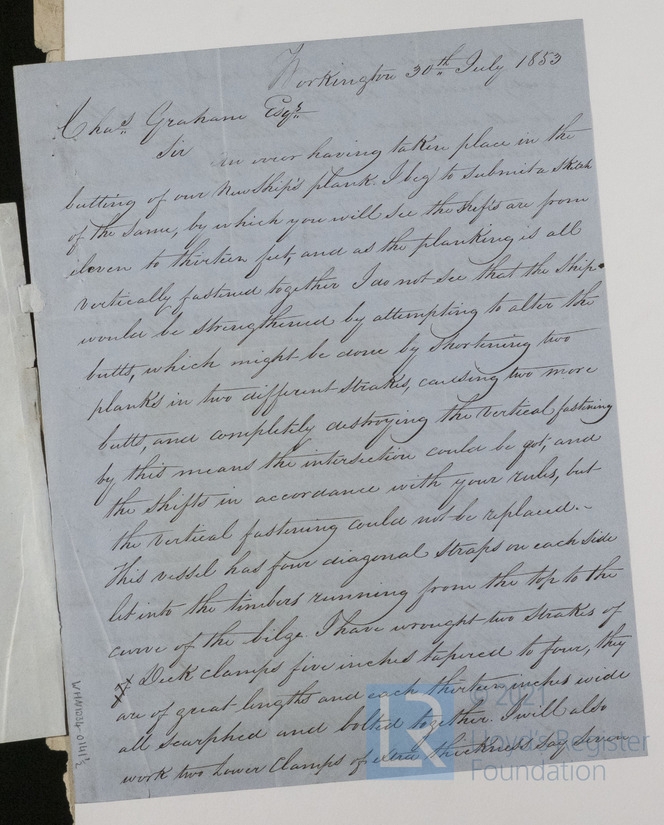 Workington 30th July 1853
Chas. Graham Esqr.
Sir an over having taken place in the
butting of our New Ship's plank. I beg to submit a Sketch
of the same, by which you will see the shifts are from
eleven to thirteen feet, and as the planking is all
vertically fastened together I do not see that the ship
would be strengthened by attempting to alter the
butts, which might be done by shortening two
planks in two different strakes, causing two more
butts, and completely destroying the vertical fastening
by this means the intersection could be got, and
the shifts in accordance with your rules, but
the vertical fastening could not be replaced.-
This vessel has four diagonal straps on each side
let into the timbers running from the top to the
curve of the bilge. I have wrought two strakes of
Deck clamps five inches tapered to four, they
are of great lengths and each thirteen inches wide
all scarphed and bolted together. I will also
work two Lower Clamps of extra thickness, say seven
WHN1234-0141/2
© 2021
LR Lloyd's Register
Foundation